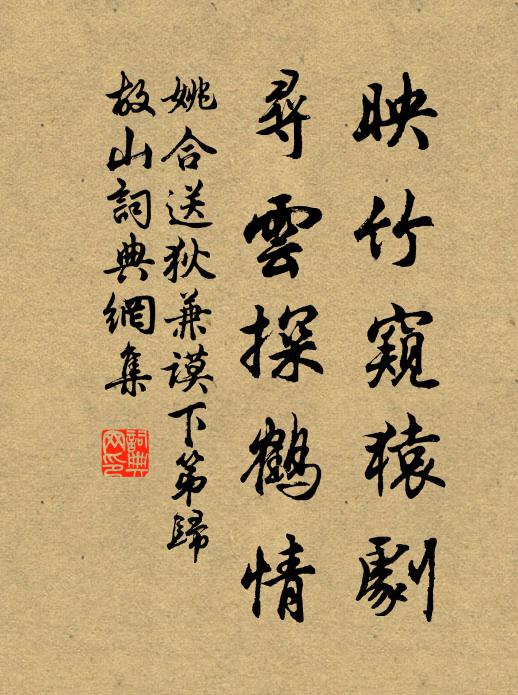 映竹窺猿劇
尋雲探鶴情
姚合送狄兼謨下第歸
故山詞典網集
詞典
网印